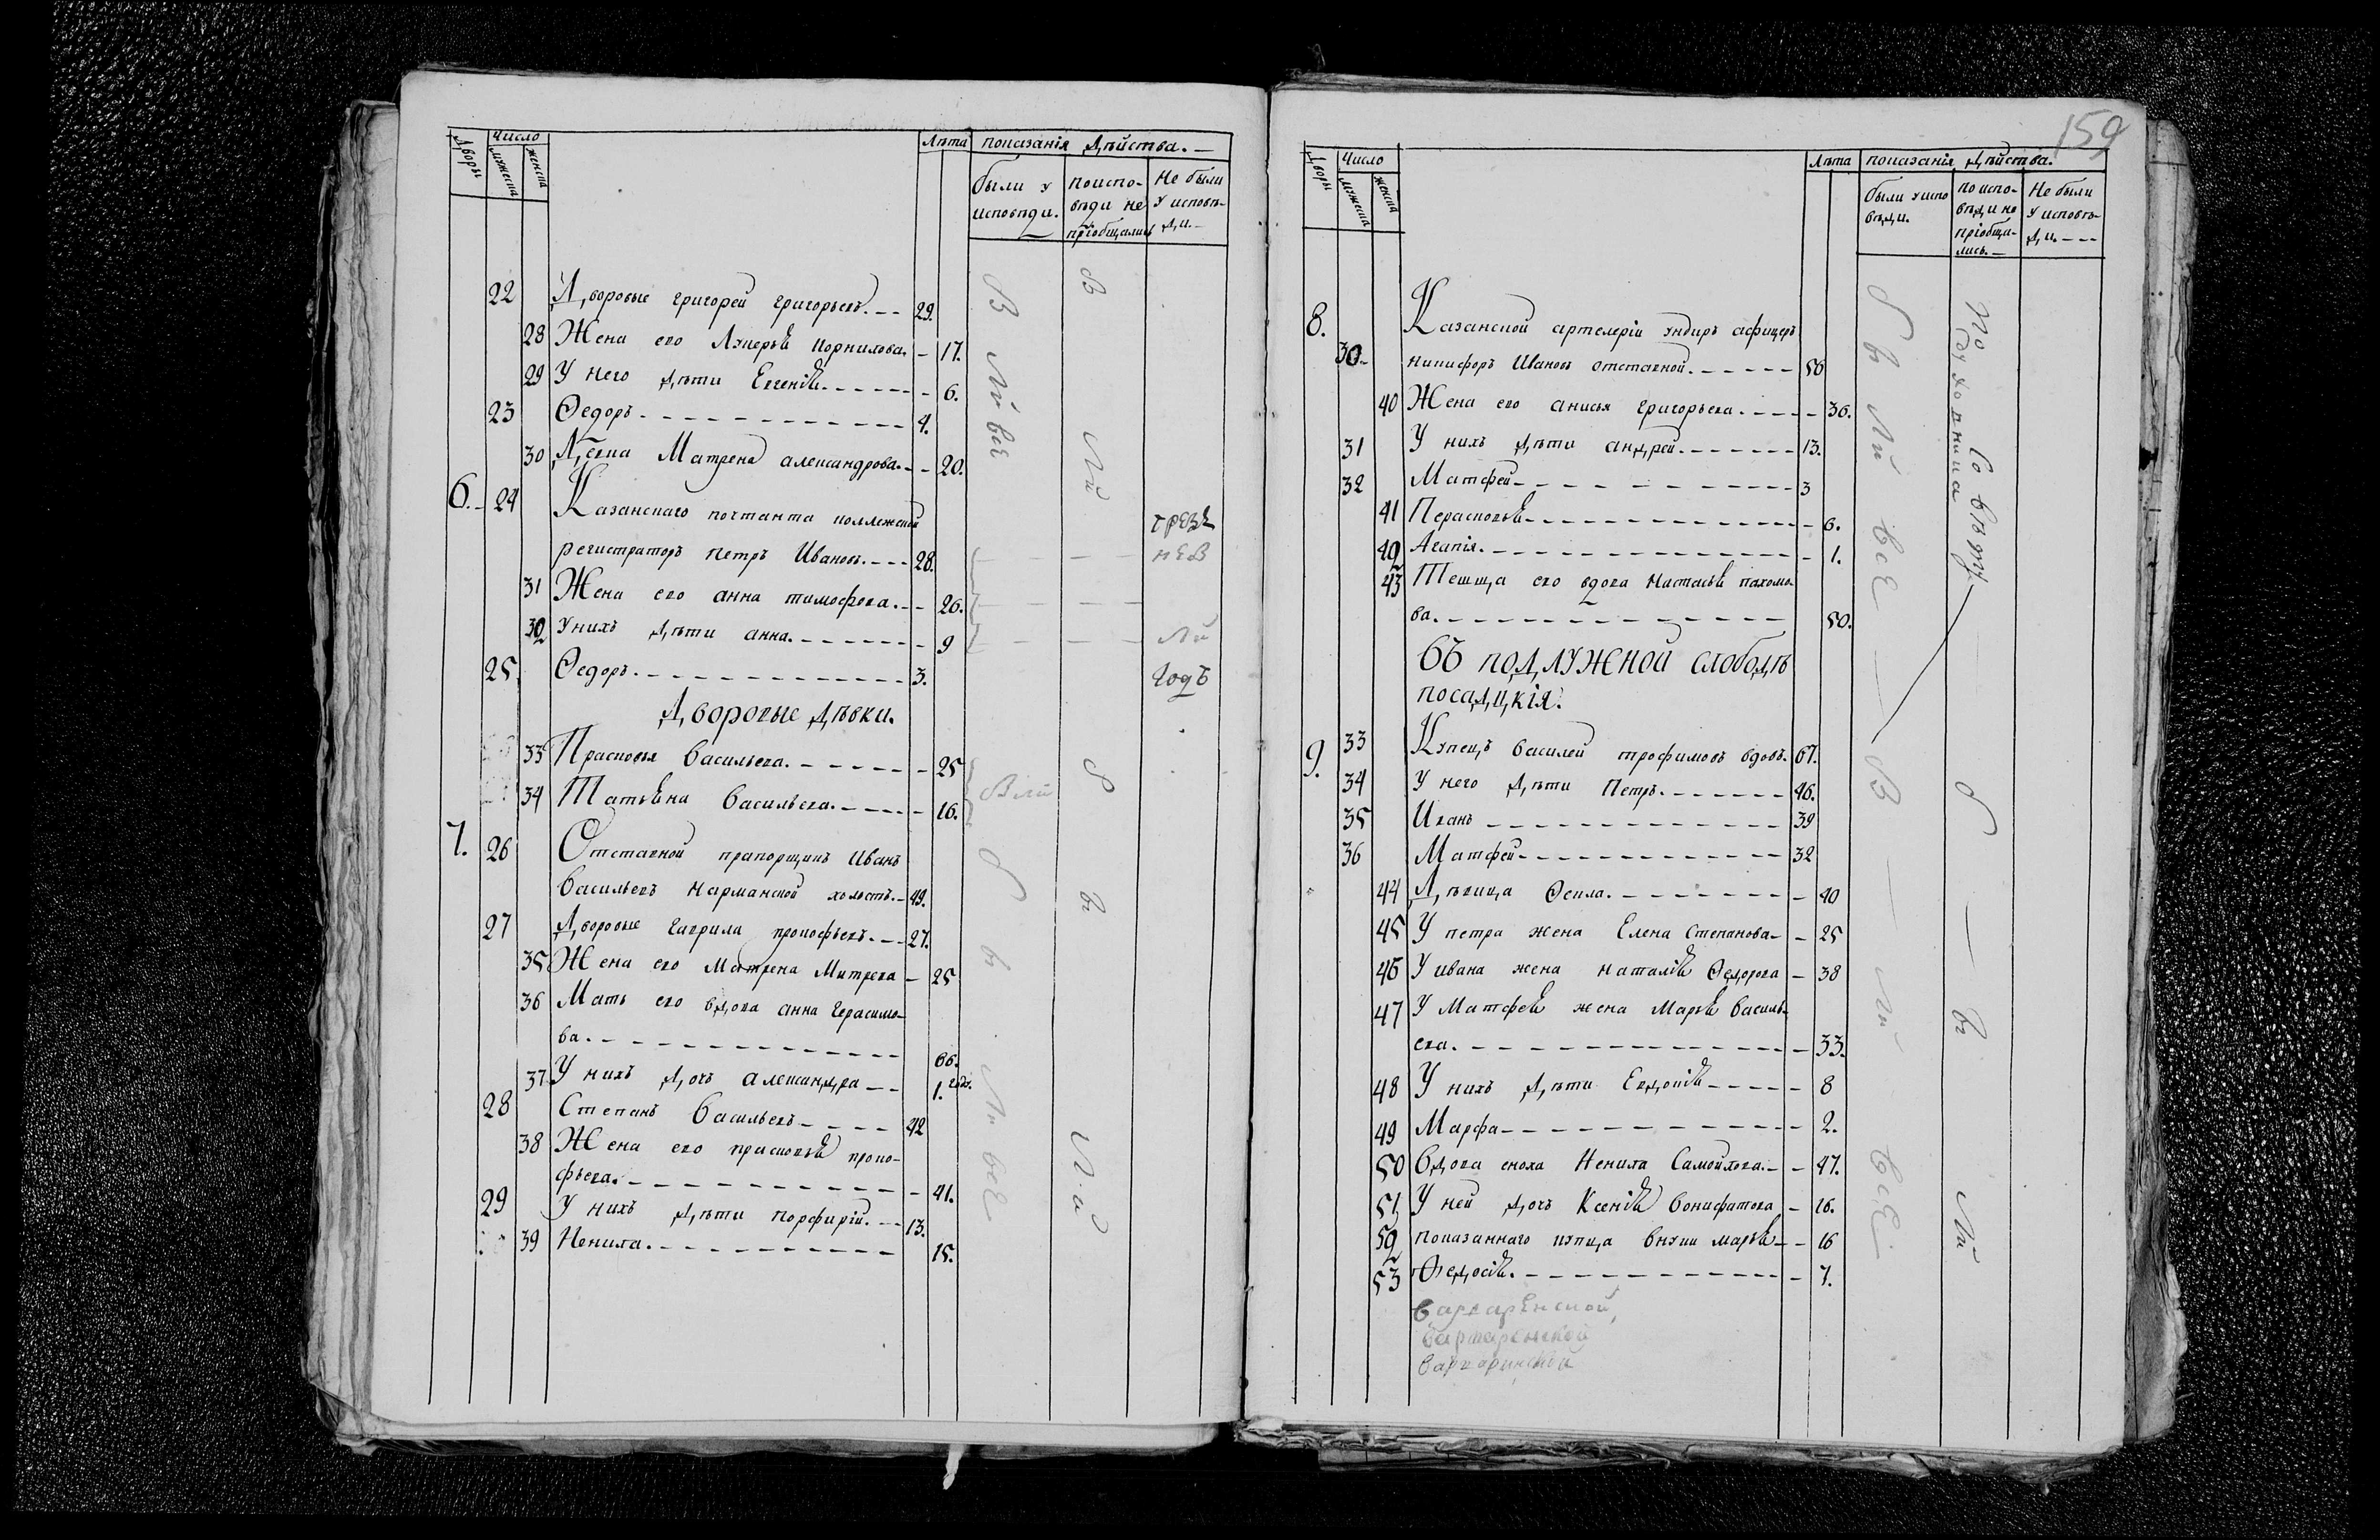 Дворы Число Лѣта показанія дѣйства.
мужеска женска были у исповѣди. поиспо- вѣди не пріобщались Не были у исповѣ- ди.
22 Дворовые григорей григорьевъ. 29.
28 Жена его Лукерья корнилова. 17.
29 У него дѣти Евгенія. 6.
23 Ѳедоръ. 4.
30 Дѣвка Матрена александрова. 20.
6. 24 Казанскаго почтамта коллежской
регистраторъ петръ Ивановъ. 28.
31 Жена его анна тимофеева. 26.
32 У нихъ дѣти анна. 9
25 Ѳедоръ. 3.
Дворовые дѣвки.
33 Прасковья васильева. 25
34 Татьяна васильева. 16.
7. 26 Отставной прапорщикъ Иванъ
васильевъ нарманской холостъ. 49.
27 Дворовые гаврила прокофьевъ. 27.
35 Жена его Матрена Митрева 25
36 Мать его вдова анна герасимо-
ва. 66.
37 У нихъ дочь александра 1. годъ.
28 Степанъ васильевъ 42
38 Жена его прасковья проко-
фьева. 41.
29 У нихъ дѣти порфирій. 13.
39 Ненила. 15.
159
Дворы Число Лѣта показанія дѣйства.
мужеска женска были у испо вѣди. по испо- вѣди не пріобща- лись. Не были у исповѣ- ди.
8. Казанской артелеріи ундиръ афицеръ
30 никифоръ Ивановъ отставной. 56
40 Жена его анисья григорьева. 36.
31 У нихъ дѣти андрей. 13.
32 Матфей 3
41 Перасковья 6.
42 Агапія. 1.
43 Тешща его вдова настасья пахомо-
ва. 50.
Въ подлужной слободѣ
посадцкія.
9. 33 Купецъ василей трофимовъ вдовъ. 67.
34 У него дѣти Петръ. 46.
35 Иванъ 39
36 Матфей 32
44 Дѣвица Ѳекла. 40
45 У петра жена Елена Степанова 25
46 У ивана жена наталія Ѳедорова 38
47 У Матфея жена Марья василь-
ева. 33.
48 У нихъ дѣти Евдокія 8
49 Марфа 2.
50 Вдова сноха Ненила Самойлова. 47.
51 У ней дочь Ксенія вонифатова 16.
52 показаннаго купца внуки марья 16
53 Ѳедосія. 7.
варваренской,
варваренской
варваринской